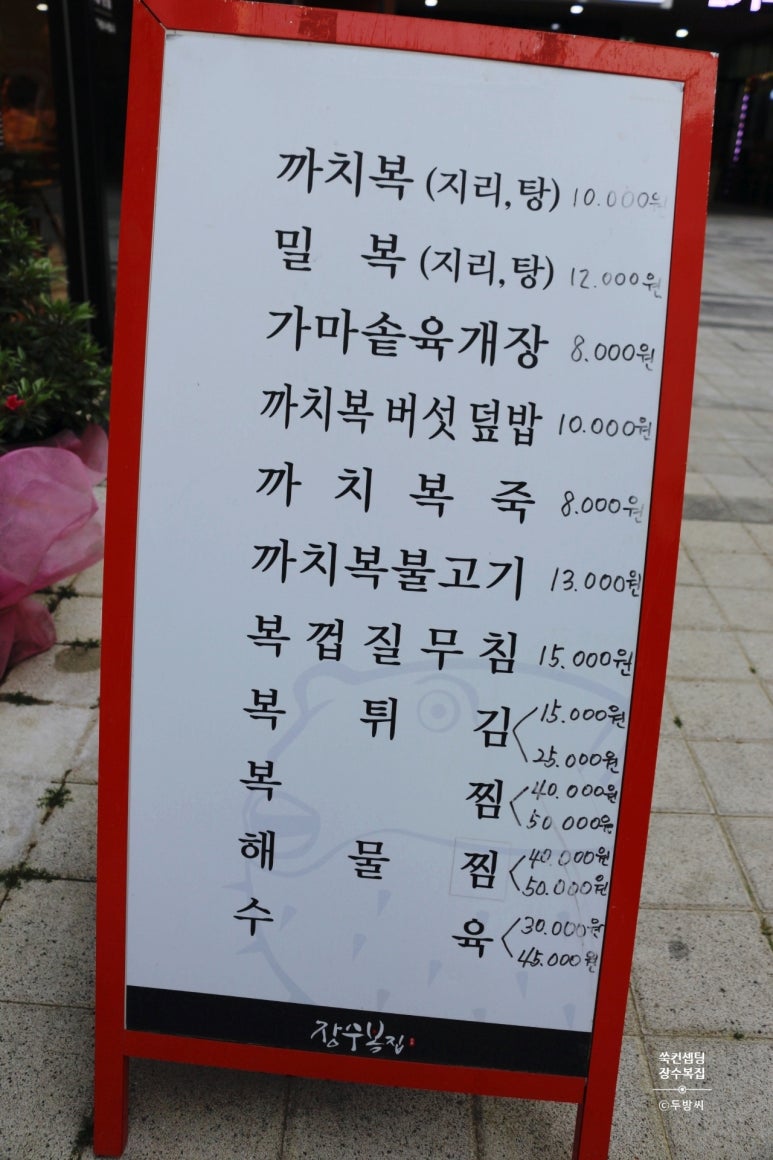 까치복 (지리,탕) 10.000원
밀 복 (지리,탕) 12.000원
가마솥육개장 8.000원
까치복 버섯 덮밥 10.000원
까 치 복 죽 8.000원
까치복불고기 13.000원
복 껍 질 무 침 15.000원
복 튀 김 15.000원
25.000원
복 찜 40.000원
50.000원
해 물 찜 40.000원
50.000원
수 육 30.000원
45.000원
장수복집
쑥컨셉팅
장수복집
©두방씨